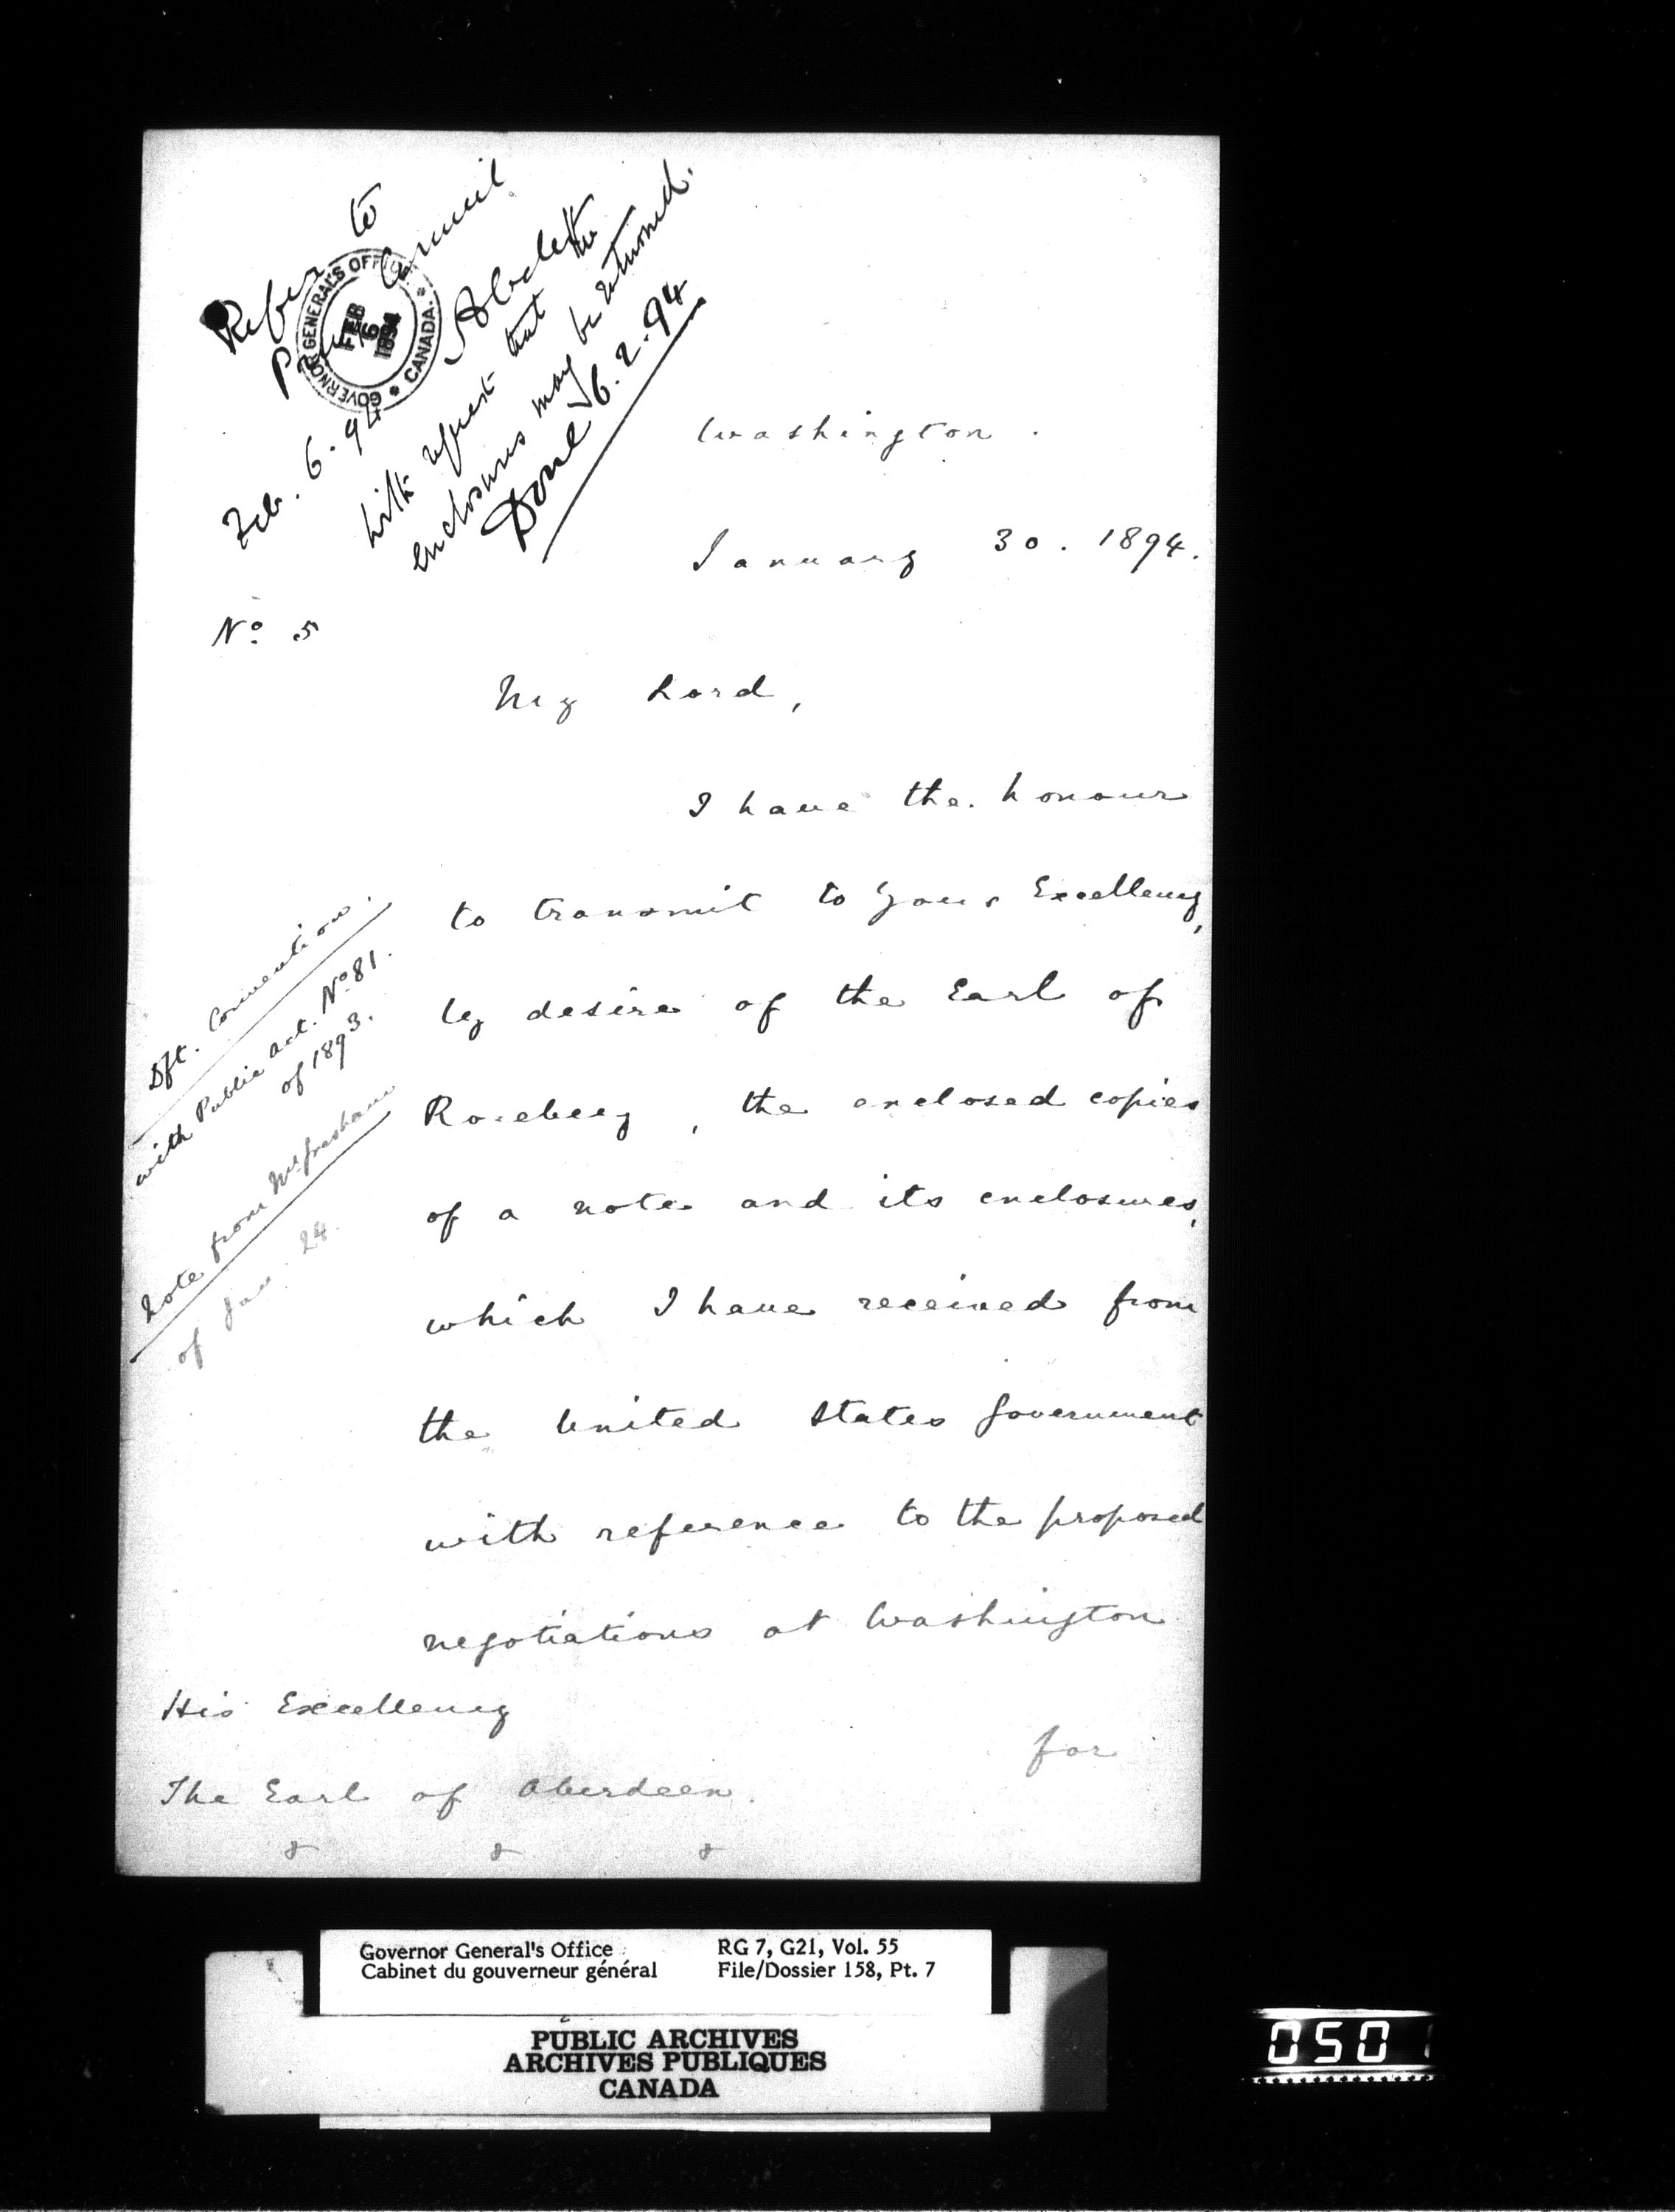 Refer to
Privy Council
Feb. 6. 94
with request that the
enclosures may be returned.
Done 6.2.94
GOVERNOR GENERAL'S OFFICE
CANADA.
FEB
6
1894
Washington.
January 30. 1894.
No. 5
My Lord,
I have the honour
to transmit to Your Excellency,
by desire of the Earl of
Rosebery, the enclosed copies
of a note and its enclosures,
which I have received from
the United States Government
with reference to the proposed
negotiations at Washington
for
Dft. Convention.
with Public Act. No 81.
of 1893.
Note from Mr Gresham
of Jan. 24.
His Excellency
The Earl of Aberdeen.
& & &
Governor General's Office
Cabinet du gouverneur général
RG 7, G21, Vol. 55
File/Dossier 158, Pt. 7
PUBLIC ARCHIVES
ARCHIVES PUBLIQUES
CANADA
050